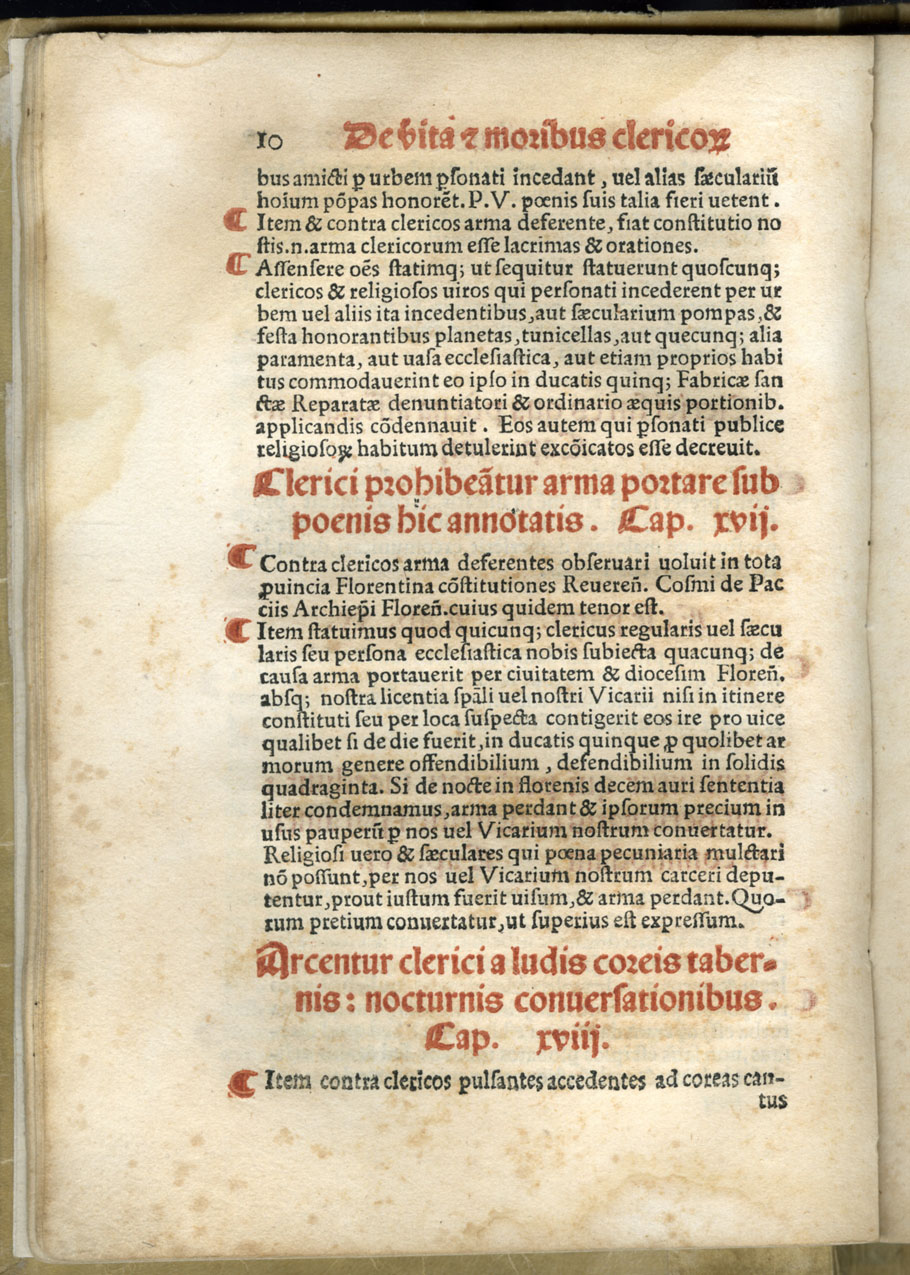 10 De vita ⁊ moribus clericoꝝ
bus amicti ꝑ urbem ꝑſonati incedant, uel alias ſæculariū
hoium põpas honorẽt. P. V. pœnis ſuis talia fieri uetent.
¶ Item & contra clericos arma deferente, fiat conſtitutio no
ſtis.n.arma clericorum eſſe lacrimas & orationes.
¶ Aſſenſere oẽs ſtatimq; ut ſequitur ſtatuerunt quoſcunq;
clericos & religioſos uiros qui perſonati incederent per ur
bem uel aliis ita incedentibus, aut ſæcularium pompas, &
feſta honorantibus planetas, tunicellas, aut quecunq; alia
paramenta, aut uaſa eccleſiaſtica, aut etiam proprios habi
tus commodauerint eo ipſo in ducatis quinq; Fabricæ ſan
ctæ Reparatæ denuntiatori & ordinario æquis portionib.
applicandis cõdennauit. Eos autem qui ꝑſonati publice
religioſoꝝ habitum detulerint excõicatos eſſe decreuit.
Clerici prohibeãtur arma portare ſub
poenis hic annotatis. Cap. xvij.
¶ Contra clericos arma deferentes obſeruari uoluit in tota
ꝓuincia Florentina cõſtitutiones Reuereñ. Coſmi de Pac
ciis Archiep̃i Floreñ.cuius quidem tenor eſt.
¶ Item ſtatuimus quod quicunq; clericus regularis uel ſæcu
laris ſeu perſona eccleſiaſtica nobis ſubiecta quacunq; de
cauſa arma portauerit per ciuitatem & dioceſim Floreñ.
abſq; noſtra licentia ſpãli uel noſtri Vicarii niſi in itinere
conſtituti ſeu per loca ſuſpecta contigerit eos ire pro uice
qualibet ſi de die fuerit, in ducatis quinque ꝓ quolibet ar
morum genere offendibilium, defendibilium in ſolidis
quadraginta. Si de nocte in florenis decem auri ſententia
liter condemnamus, arma perdant & ipſorum precium in
uſus pauperũ ꝑ nos uel Vicarium noſtrum conuertatur.
Religioſi uero & ſæculares qui pœna pecuniaria mulctari
nõ poſſunt, per nos uel Vicarium noſtrum carceri depu-
tentur, prout iuſtum fuerit uiſum, & arma perdant. Quo-
rum pretium conuertatur, ut ſuperius eſt expreſſum.
Arcentur clerici a ludis coreis taber-
nis: nocturnis conuerſationibus.
Cap. xviij.
¶ Item contra clericos pulſantes accedentes ad coreas can-
tus